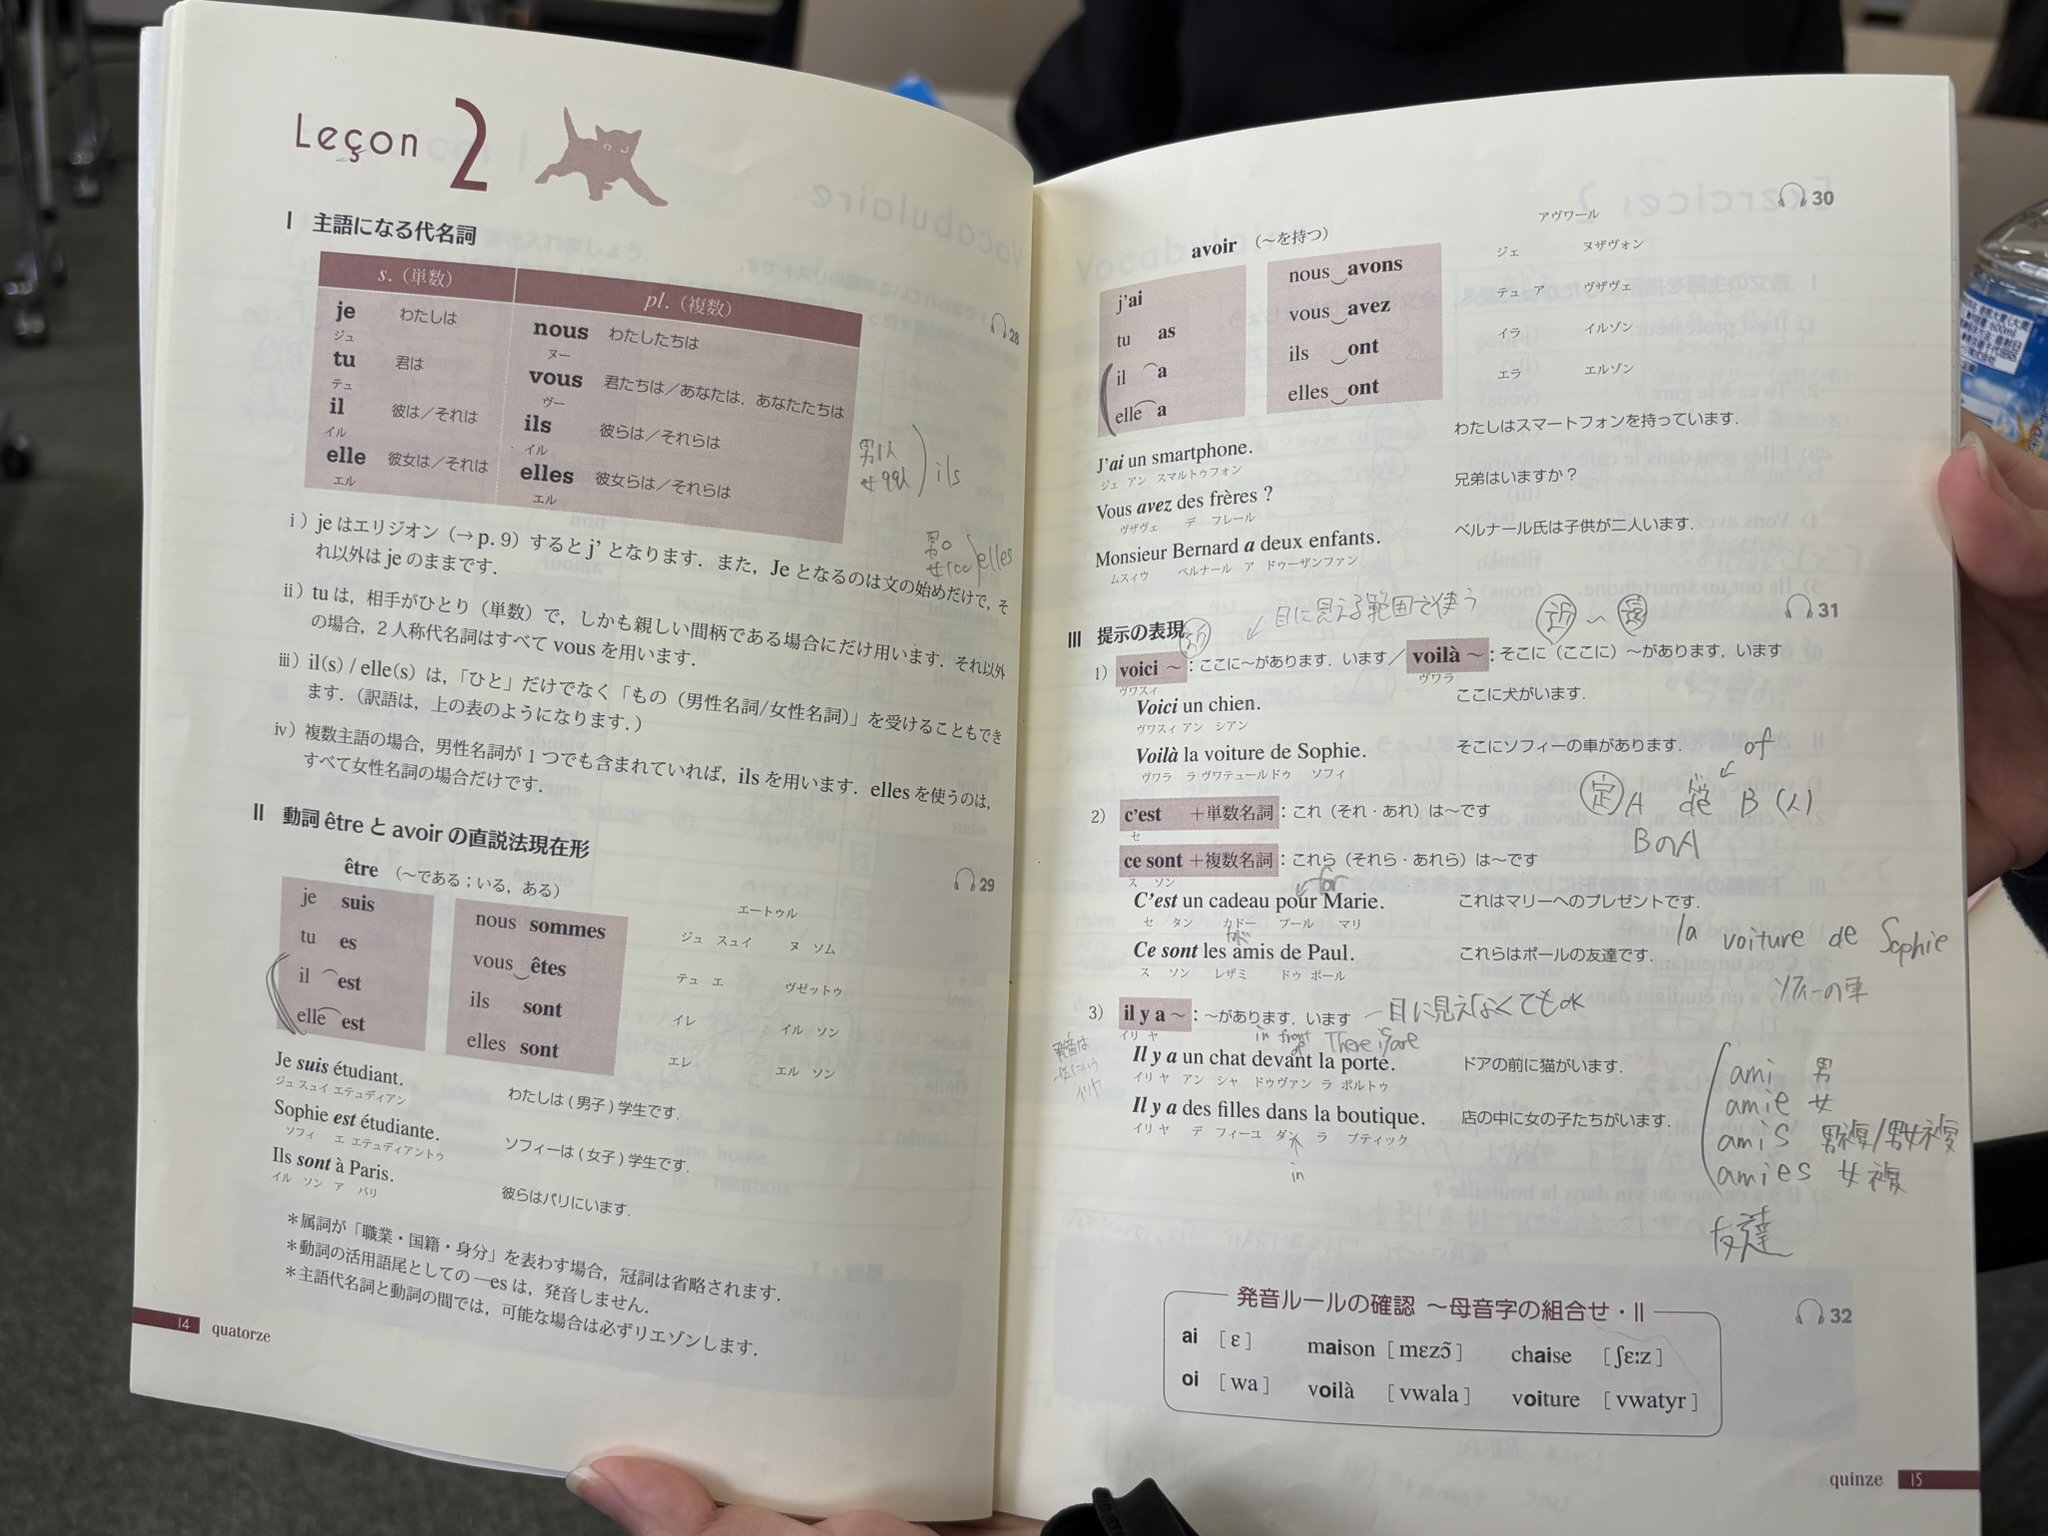 Leçon 2
I 主語になる代名詞
s.（単数） pl.（複数）
je わたしは
ジュ
tu 君は
テュ
il 彼は／それは
イル
elle 彼女は／それは
エル
nous わたしたちは
ヌー
vous 君たちは／あなたは，あなたたちは
ヴー
ils 彼らは／それらは
イル
elles 彼女らは／それらは
エル
28
男1人
女99人
ils
男0
女100
elles
i）je はエリジオン（→ p. 9）すると j’ となります．また，Je となるのは文の始めだけで，そ
れ以外は je のままです．
ii）tu は，相手がひとり（単数）で，しかも親しい間柄である場合にだけ用います．それ以外
の場合，2 人称代名詞はすべて vous を用います．
iii）il(s) / elle(s) は，「ひと」だけでなく「もの（男性名詞/女性名詞）」を受けることもでき
ます．（訳語は，上の表のようになります．）
iv）複数主語の場合，男性名詞が 1 つでも含まれていれば，ils を用います．elles を使うのは，
すべて女性名詞の場合だけです．
II 動詞 être と avoir の直説法現在形
29
être （〜である；いる，ある）
je suis
tu es
il est
elle est
nous sommes
vous êtes
ils sont
elles sont
エートゥル
ジュ スュイ ヌ ソム
テュ エ ヴゼットゥ
イレ イル ソン
エレ エル ソン
Je suis étudiant. わたしは ( 男子 ) 学生です．
ジュ スュイ エテュディアン
Sophie est étudiante. ソフィーは ( 女子 ) 学生です．
ソフィ エ エテュディアントゥ
Ils sont à Paris. 彼らはパリにいます．
イル ソン ア パリ
＊属詞が「職業・国籍・身分」を表わす場合，冠詞は省略されます．
＊動詞の活用語尾としての ―es は，発音しません．
＊主語代名詞と動詞の間では，可能な場合は必ずリエゾンします．
14 quatorze
30
avoir （〜を持つ）
j’ai
tu as
il a
elle a
nous avons
vous avez
ils ont
elles ont
アヴワール
ジェ ヌザヴォン
テュ ア ヴザヴェ
イラ イルゾン
エラ エルゾン
J’ai un smartphone. わたしはスマートフォンを持っています．
ジェ アン スマルトゥフォン
Vous avez des frères ? 兄弟はいますか？
ヴザヴェ デ フレール
Monsieur Bernard a deux enfants. ベルナール氏は子供が二人います．
ムスィウ ベルナール ア ドゥーザンファン
目に見える範囲で使う
近 〜 遠
31
III 提示の表現
近
1）voici 〜：ここに〜があります，います／voilà 〜：そこに（ここに）〜があります，います
ヴワスィ ヴワラ
Voici un chien. ここに犬がいます．
ヴワスィ アン シアン
Voilà la voiture de Sophie. そこにソフィーの車があります．
ヴワラ ラ ヴワテュール ドゥ ソフィ
of
定 A de B (人)
BのA
2）c’est ＋単数名詞：これ（それ・あれ）は〜です
セ
ce sont ＋複数名詞：これら（それら・あれら）は〜です
ス ソン
for
C’est un cadeau pour Marie. これはマリーへのプレゼントです．
セ タン カドー プール マリ
Ce sont les amis de Paul. これらはポールの友達です．
ス ソン レザミ ドゥ ポール
la voiture de Sophie
ソフィーの車
3）il y a 〜：〜があります，います
イリ ヤ
目に見えなくてもOK
in front of
There is/are
発音は
イリヤ
Il y a un chat devant la porte. ドアの前に猫がいます．
イリ ヤ アン シャ ドゥヴァン ラ ポルトゥ
Il y a des filles dans la boutique. 店の中に女の子たちがいます．
イリ ヤ デ フィーユ ダン ラ ブティック
in
ami 男
amie 女
amis 男複/男女複
amies 女複
友達
発音ルールの確認 〜母音字の組合せ・II
32
ai [ ɛ ] maison [ mɛzɔ̃ ] chaise [ ʃɛːz ]
oi [ wa ] voilà [ vwala ] voiture [ vwatyr ]
quinze 15